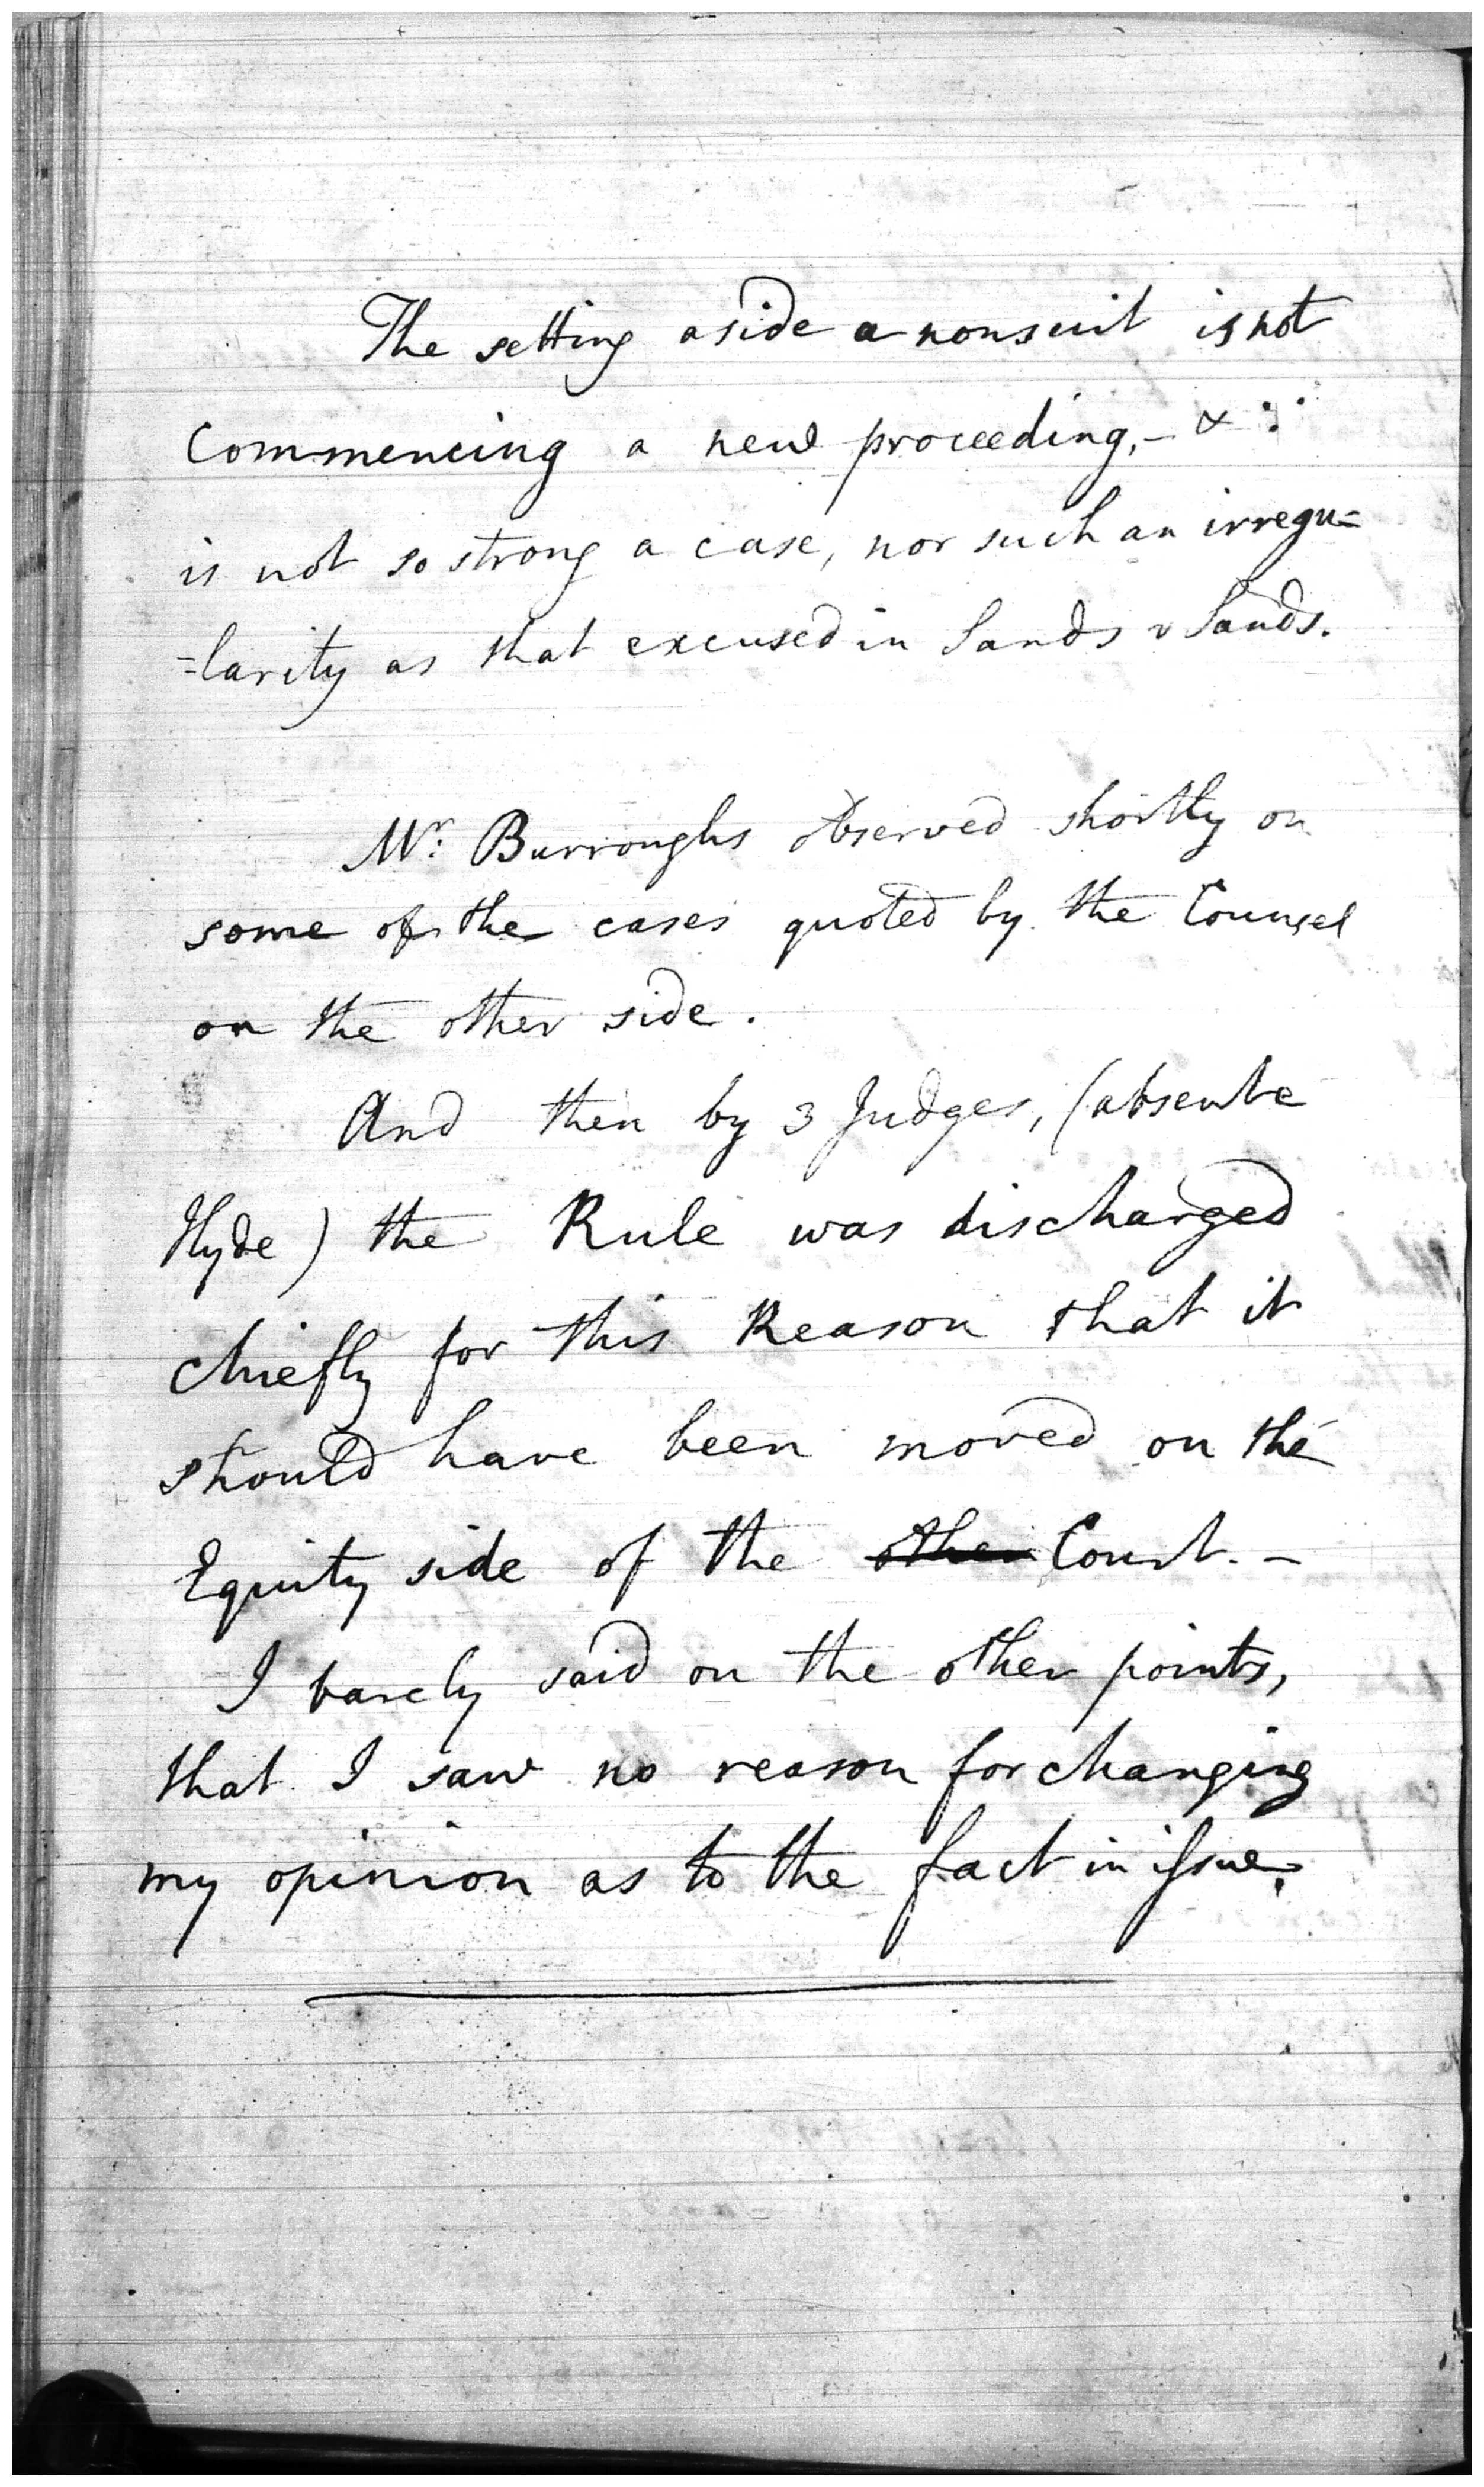 The setting aside a nonsuit is not
commencing a new proceeding, - & ∵
is not so strong a case, nor such an irregu=
=larity as that excused in Sands v Sands.
Mr: Burroughs observed shortly on
some of the cases quoted by the Counsel
on the other side.
And then by 3 Judges, (absente
Hyde) the Rule was discharged
chiefly for this Reason that it
should have been moved on the
Equity side of the other Court. -
I barely said on the other points,
that I saw no reason for changing
my opinion as to the fact in issue.